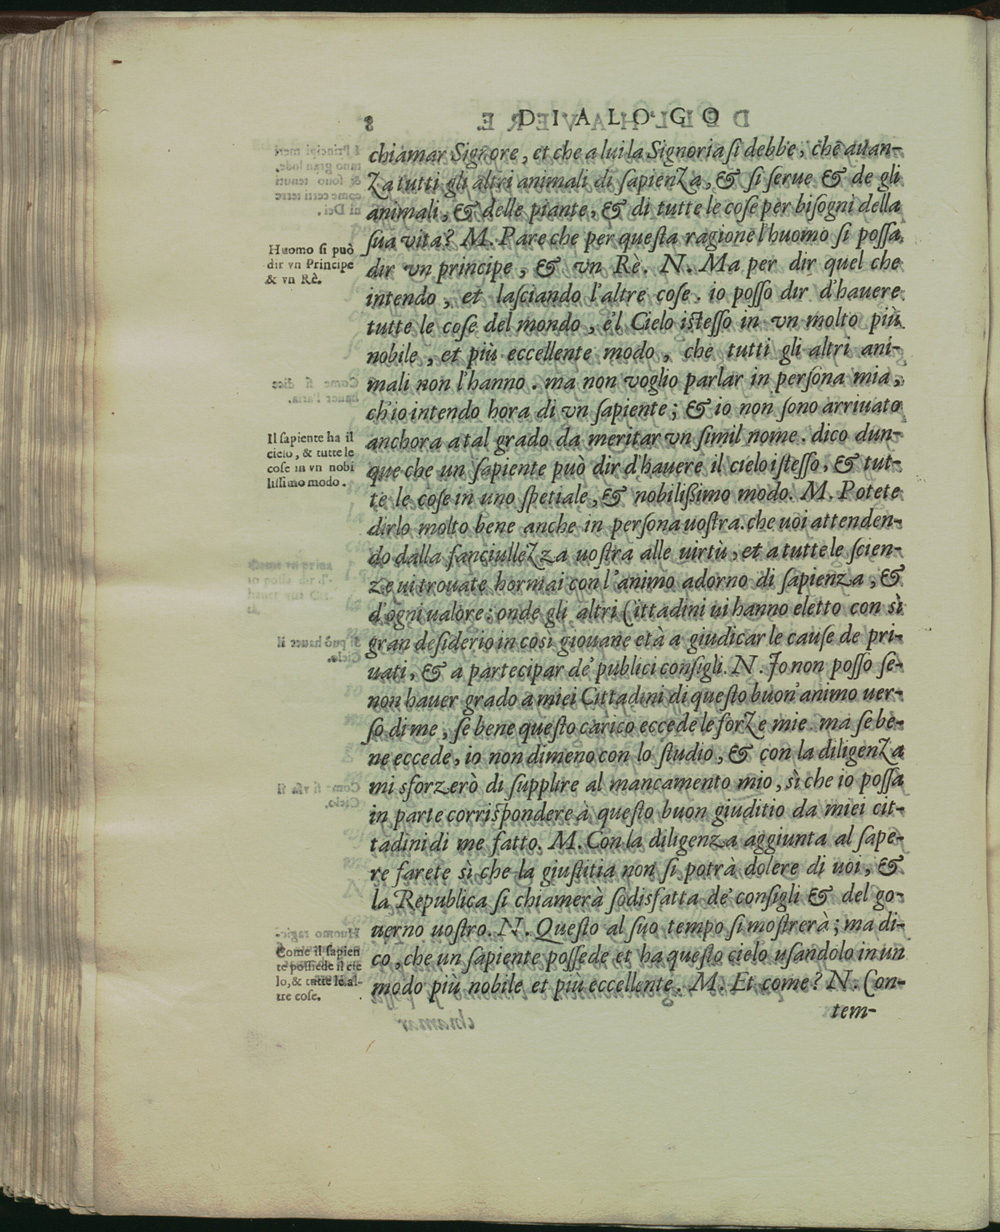 DIALOGO
chiamar Signore, et che a lui la Signoria si debbe, che auan-
Za tutti gli altri animali di sapienZa, & si serue & de gli
animali, & delle piante, & di tutte le cose per bisogni della
sua vita? M. Pare che per questa ragione l'huomo si possa
dir vn principe, & vn Rè. N. Ma per dir quel che
intendo, et lasciando l'altre cose. io posso dir d'hauere
tutte le cose del mondo, e'l Cielo istesso in vn molto più
nobile, et più eccellente modo, che tutti gli altri ani-
mali non l'hanno. ma non voglio parlar in persona mia,
ch'io intendo hora di vn sapiente; & io non sono arriuato
anchora a tal grado da meritar vn simil nome. dico dun-
que che un sapiente può dir d'hauere il cielo istesso, & tut-
te le cose in uno spetiale, & nobilißimo modo. M. Potete
dirlo molto bene anche in persona uostra. che uoi attenden-
do dalla fanciulleZza uostra alle uirtù, et a tutte le scien-
ze ui trouate hormai con l'animo adorno di sapienza, &
d'ogni ualore: onde gli altri Cittadini ui hanno eletto con sì
gran desiderio in così giouane età a giudicar le cause de pri-
uati, & a partecipar de' publici consigli. N. Io non posso se-
non hauer grado a miei Cittadini di questo buon'animo uer-
so di me, se bene questo carico eccede le forZe mie. ma se be-
ne eccede, io non dimeno con lo studio, & con la diligenZa
mi sforzerò di supplire al mancamento mio, sì che io possa
in parte corrispondere à questo buon giuditio da miei cit-
tadini di me fatto. M. Con la diligenza aggiunta al sape-
re farete sì che la giustitia non si potrà dolere di uoi, &
la Republica si chiamerà sodisfatta de' consigli & del go-
uerno uostro. N. Questo al suo tempo si mostrerà; ma di-
co, che un sapiente possede et ha questo cielo usandolo in un
modo più nobile et più eccellente. M. Et come? N. Con-
tem-
Huomo si può
dir vn Principe
& vn Rè.
Il sapiente ha il
cielo, & tutte le
cose in vn nobi
lissimo modo.
Come il sapien
te possiede il cie
lo, & tutte le al-
tre cose.